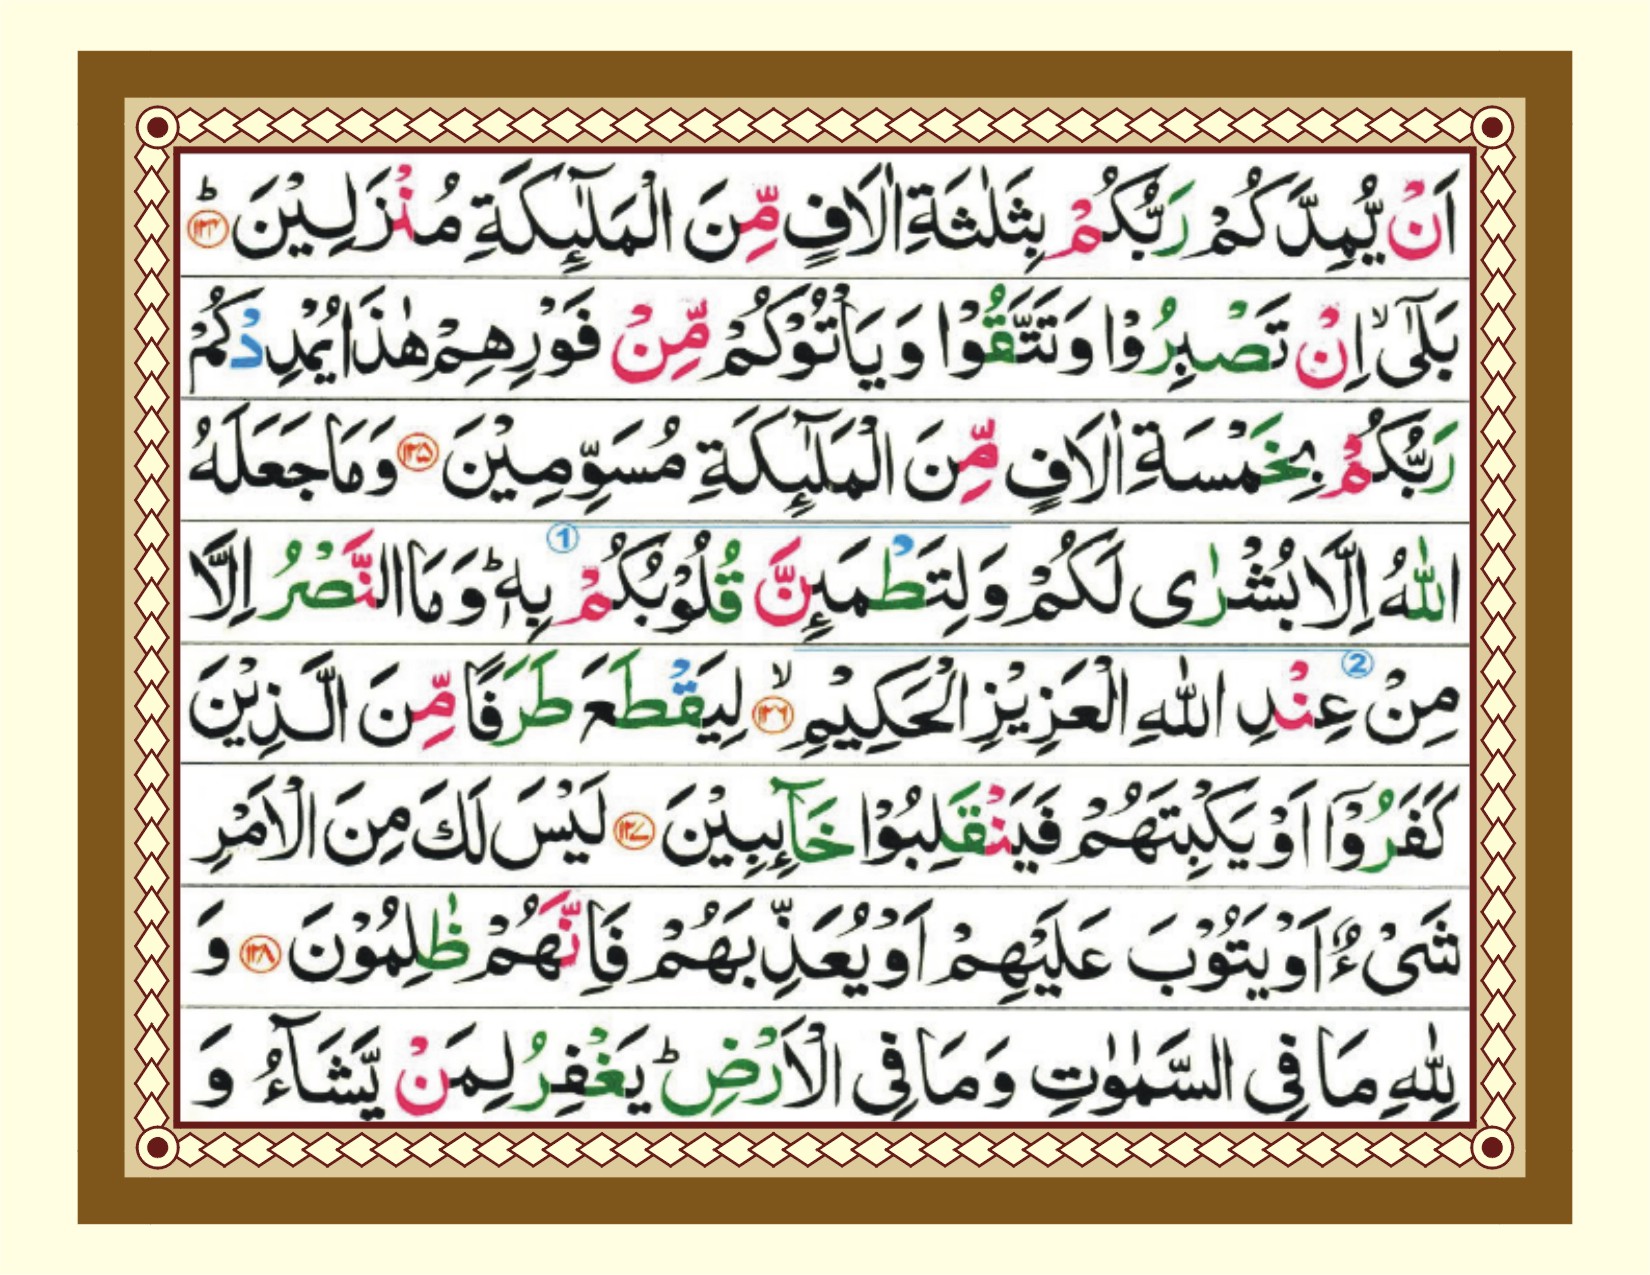 اَنْ يُّمِدَّكُمْ رَبُّكُمْ بِثَلٰثَةِ اٰلَافٍ مِّنَ الْمَلٰٓئِكَةِ مُنْزَلِيْنَ ؕ ﴿۱۲۴﴾
بَلٰٓى ۙ اِنْ تَصْبِرُوْا وَتَتَّقُوْا وَيَاْتُوْكُمْ مِّنْ فَوْرِهِمْ هٰذَا يُمْدِدْكُمْ
رَبُّكُمْ بِخَمْسَةِ اٰلَافٍ مِّنَ الْمَلٰٓئِكَةِ مُسَوِّمِيْنَ ﴿۱۲۵﴾ وَمَا جَعَلَهُ
اللّٰهُ اِلَّا بُشْرٰى لَكُمْ وَلِتَطْمَئِنَّ قُلُوْبُكُمْ بِهٖ ؕ وَمَا النَّصْرُ اِلَّا ①
مِنْ عِنْدِ اللّٰهِ الْعَزِيْزِ الْحَكِيْمِ ۙ ﴿۱۲۶﴾ لِيَقْطَعَ طَرَفًا مِّنَ الَّذِيْنَ ②
كَفَرُوْٓا اَوْ يَكْبِتَهُمْ فَيَنْقَلِبُوْا خَآئِبِيْنَ ﴿۱۲۷﴾ لَيْسَ لَكَ مِنَ الْاَمْرِ
شَىْءٌ اَوْ يَتُوْبَ عَلَيْهِمْ اَوْ يُعَذِّبَهُمْ فَاِنَّهُمْ ظٰلِمُوْنَ ﴿۱۲۸﴾ وَ
لِلّٰهِ مَا فِى السَّمٰوٰتِ وَمَا فِى الْاَرْضِ ؕ يَغْفِرُ لِمَنْ يَّشَآءُ وَ